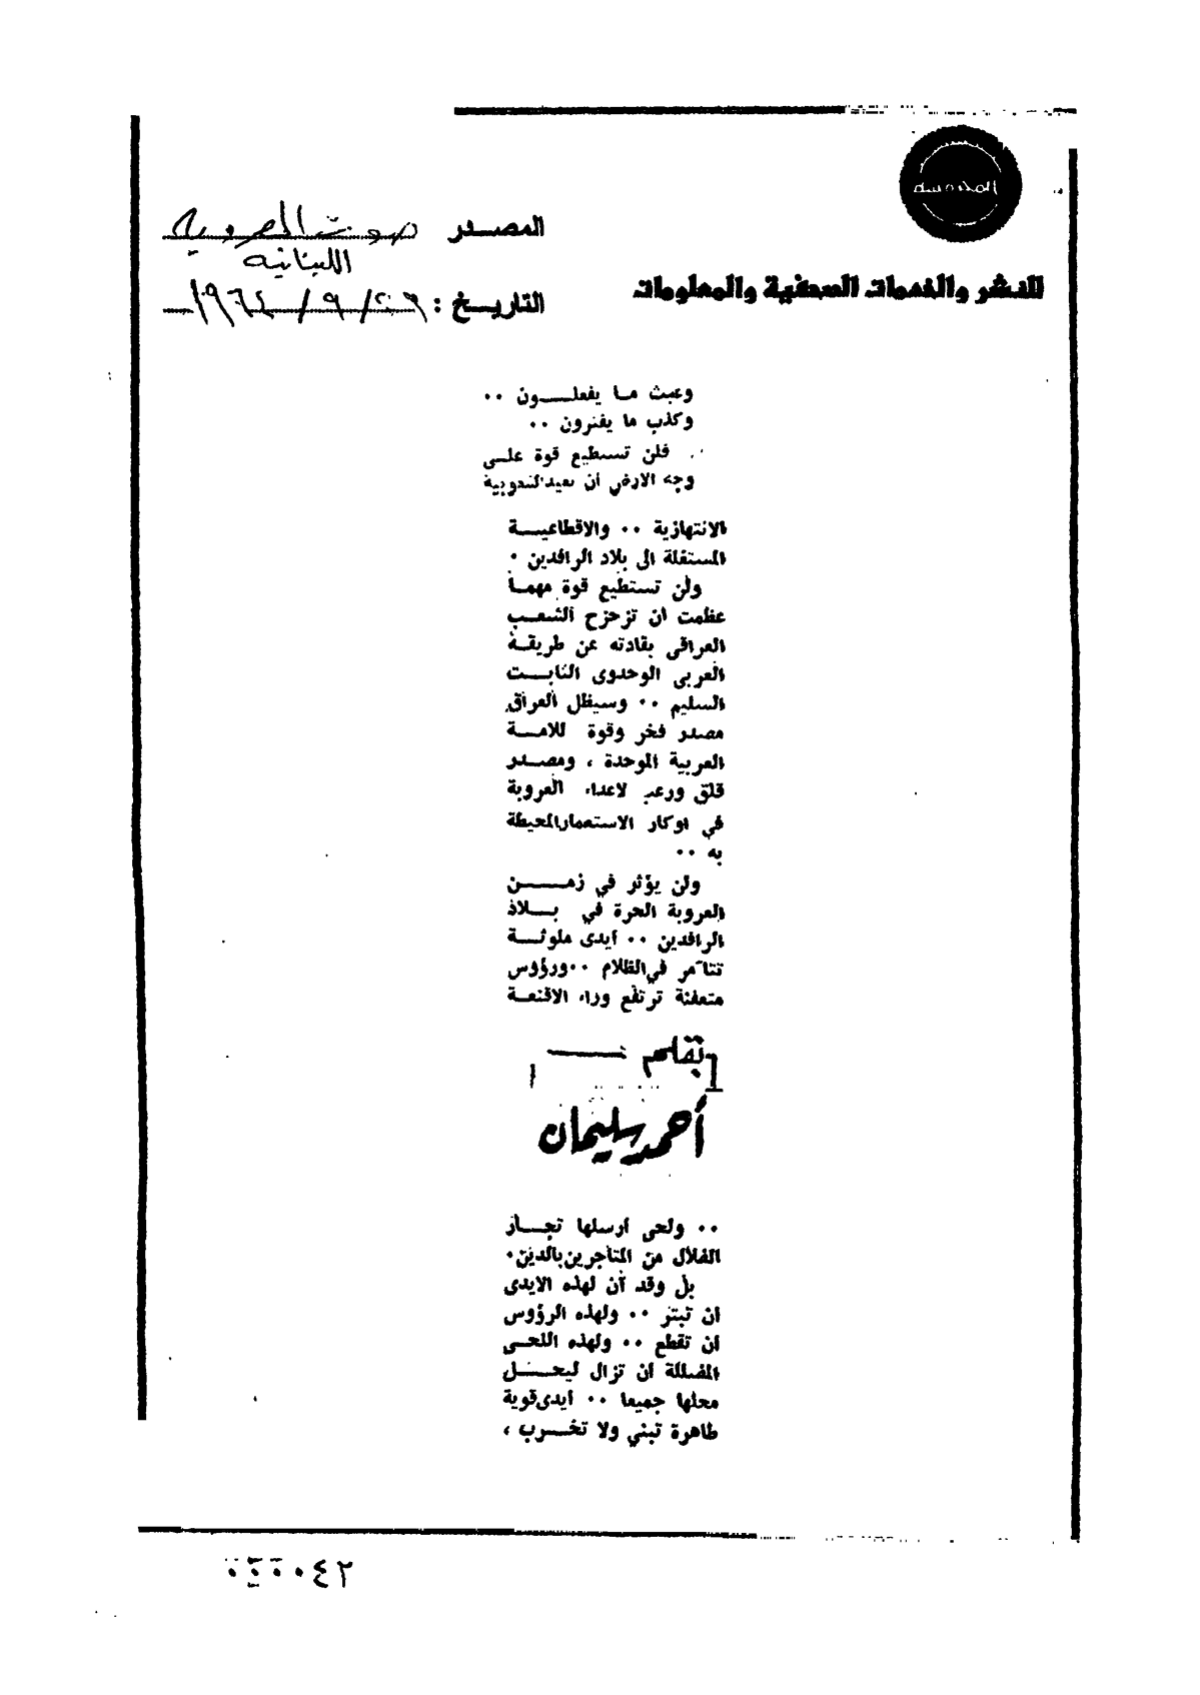 المحروسة
للنشر والخدمات الصحفية والمعلومات
المصدر صوت العروبة
اللبنانية
التاريخ : ٢٦/٩/١٩٦٤
وعبث ما يفعلـــون ٠٠
وكذب ما يفترون ٠٠
فلن تستطيع قوة علـى
وجه الارض أن تعيد
الانتهازية ٠٠ والاقطاعيـــة
المستغلة الى بلاد الرافدين ٠
ولن تستطيع قوة مهمـا
عظمت ان تزحزح الشعـب
العراقي بقادته عن طريقـه
العربي الوحدوى الثابـــت
السليم ٠٠ وسيظل العراق
مصدر فخر وقوة للامـــة
العربية الموحدة ، ومصـدر
قلق ورعب لاعداء العروبة
في اوكار الاستعمار المحيطة
به ٠٠
ولن يؤثر في زمـــن
العروبة الحرة في بـــلاد
الرافدين ٠٠ أيدى ملوثـــة
تتآمر في الظلام ٠٠ ورؤوس
متعفنة ترتفع وراء الاقنعـة
بقلم
أحمد سليمان
٠٠ ولحى ارسلها تجـــار
الضلال من المتاجرين بالدين ٠
بل وقد آن لهذه الايدى
ان تبتر ٠٠ ولهذه الرؤوس
ان تقطع ٠٠ ولهذه اللحـى
المضللة ان تزال ليحـــل
محلها جميعا ٠٠ أيدى قوية
طاهرة تبني ولا تخـــرب ،
٤٢